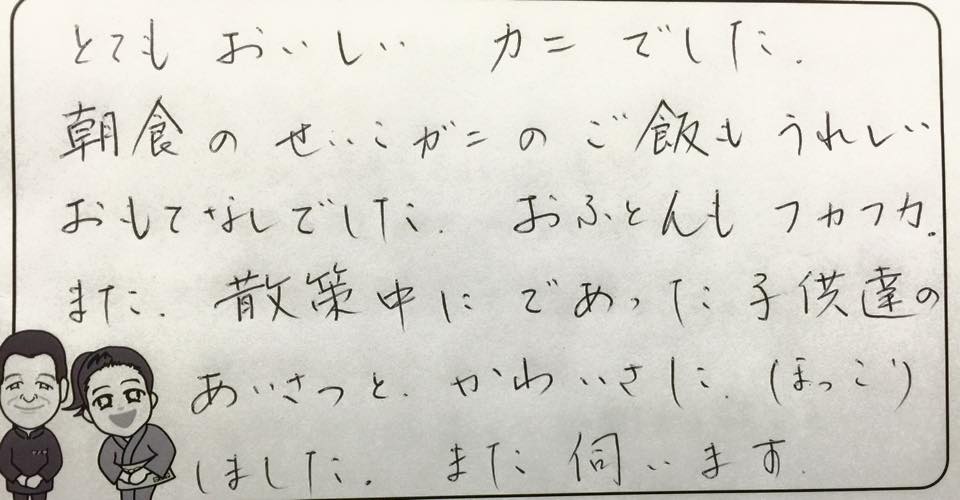 とても おいしい カニ でした.
朝食の せいこガニの ご飯も うれしい
おもてなしでした. おふとんも フカフカ.
また. 散策中に であった 子供達の
あいさつと. かわいさに. (ほっこ゚)
しました. また 伺います.